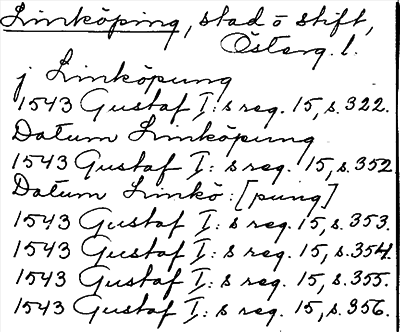 Linköping, stad o stift,
Österg. l.
j Linköpung
1543 Gustaf I: s reg. 15, s. 322.
Datum Linköpung
1543 Gustaf I: s reg. 15, s. 352
Datum Linkö: [pung]
1543 Gustaf I: s reg. 15, s. 353.
1543 Gustaf I: s reg. 15, s. 354.
1543 Gustaf I: s reg. 15, s. 355.
1543 Gustaf I: s reg. 15, s. 356.